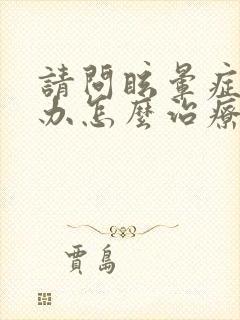 請問眩暈症
办怎麼治療
賈島